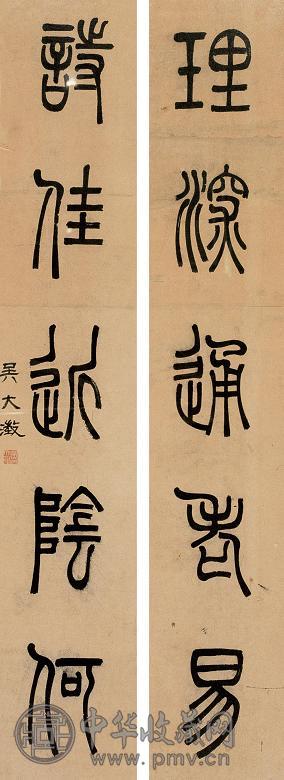 理深通老易
詩佳近陰何
吳大澂
中华收藏网
www.pmv.cn